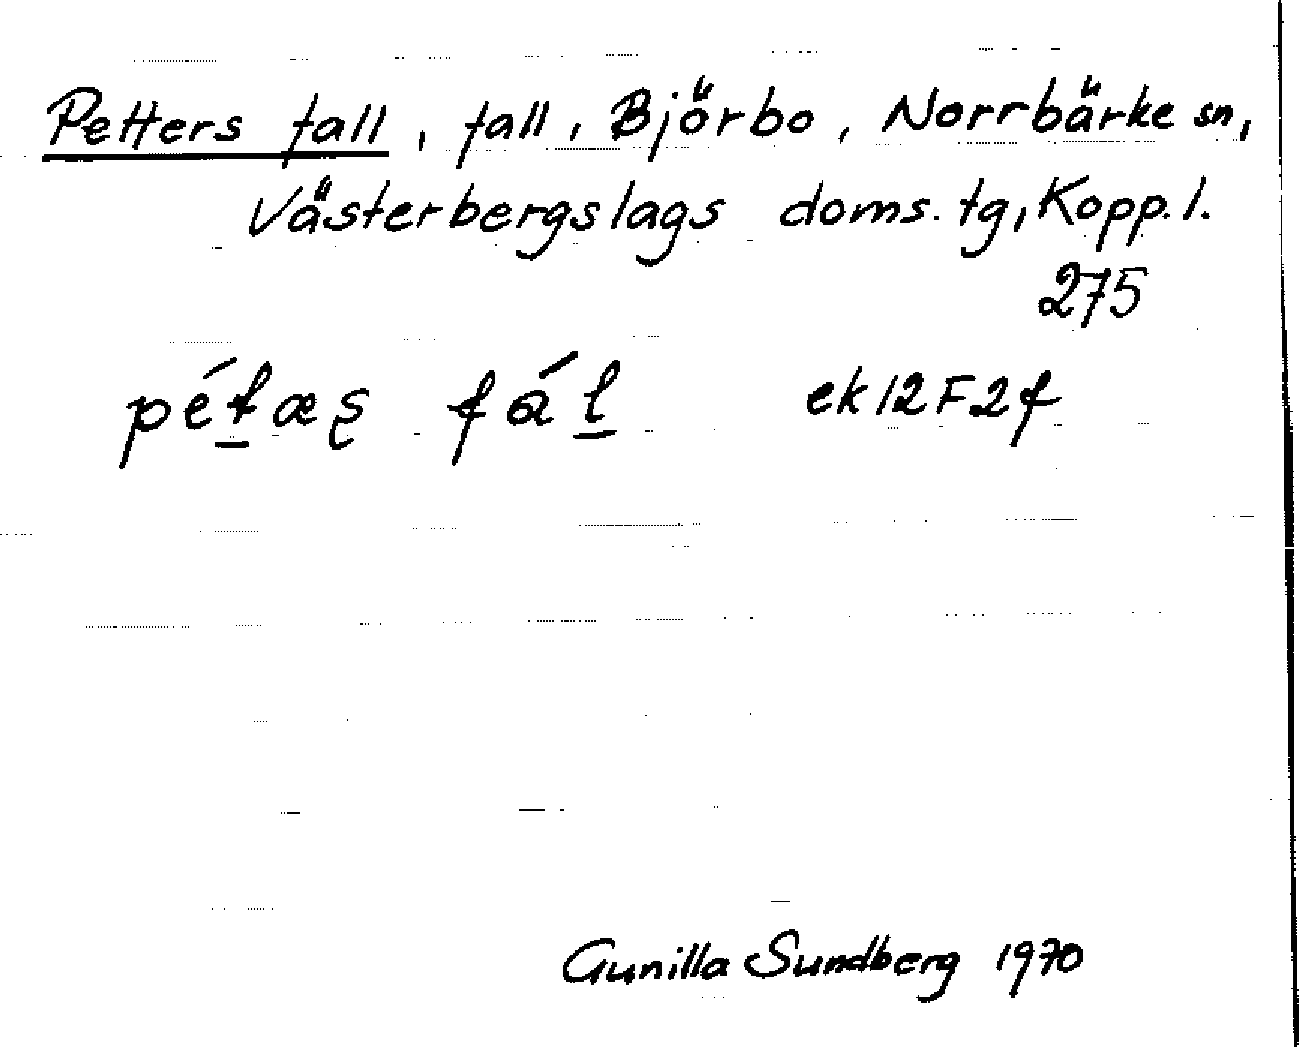 Petters fall, fall, Björbo, Norrbärke sn,
Västerbergslags doms. tg, Kopp. l.
275
pét̠æʂ fál̠ ek 12F2f
Gunilla Sundberg 1970